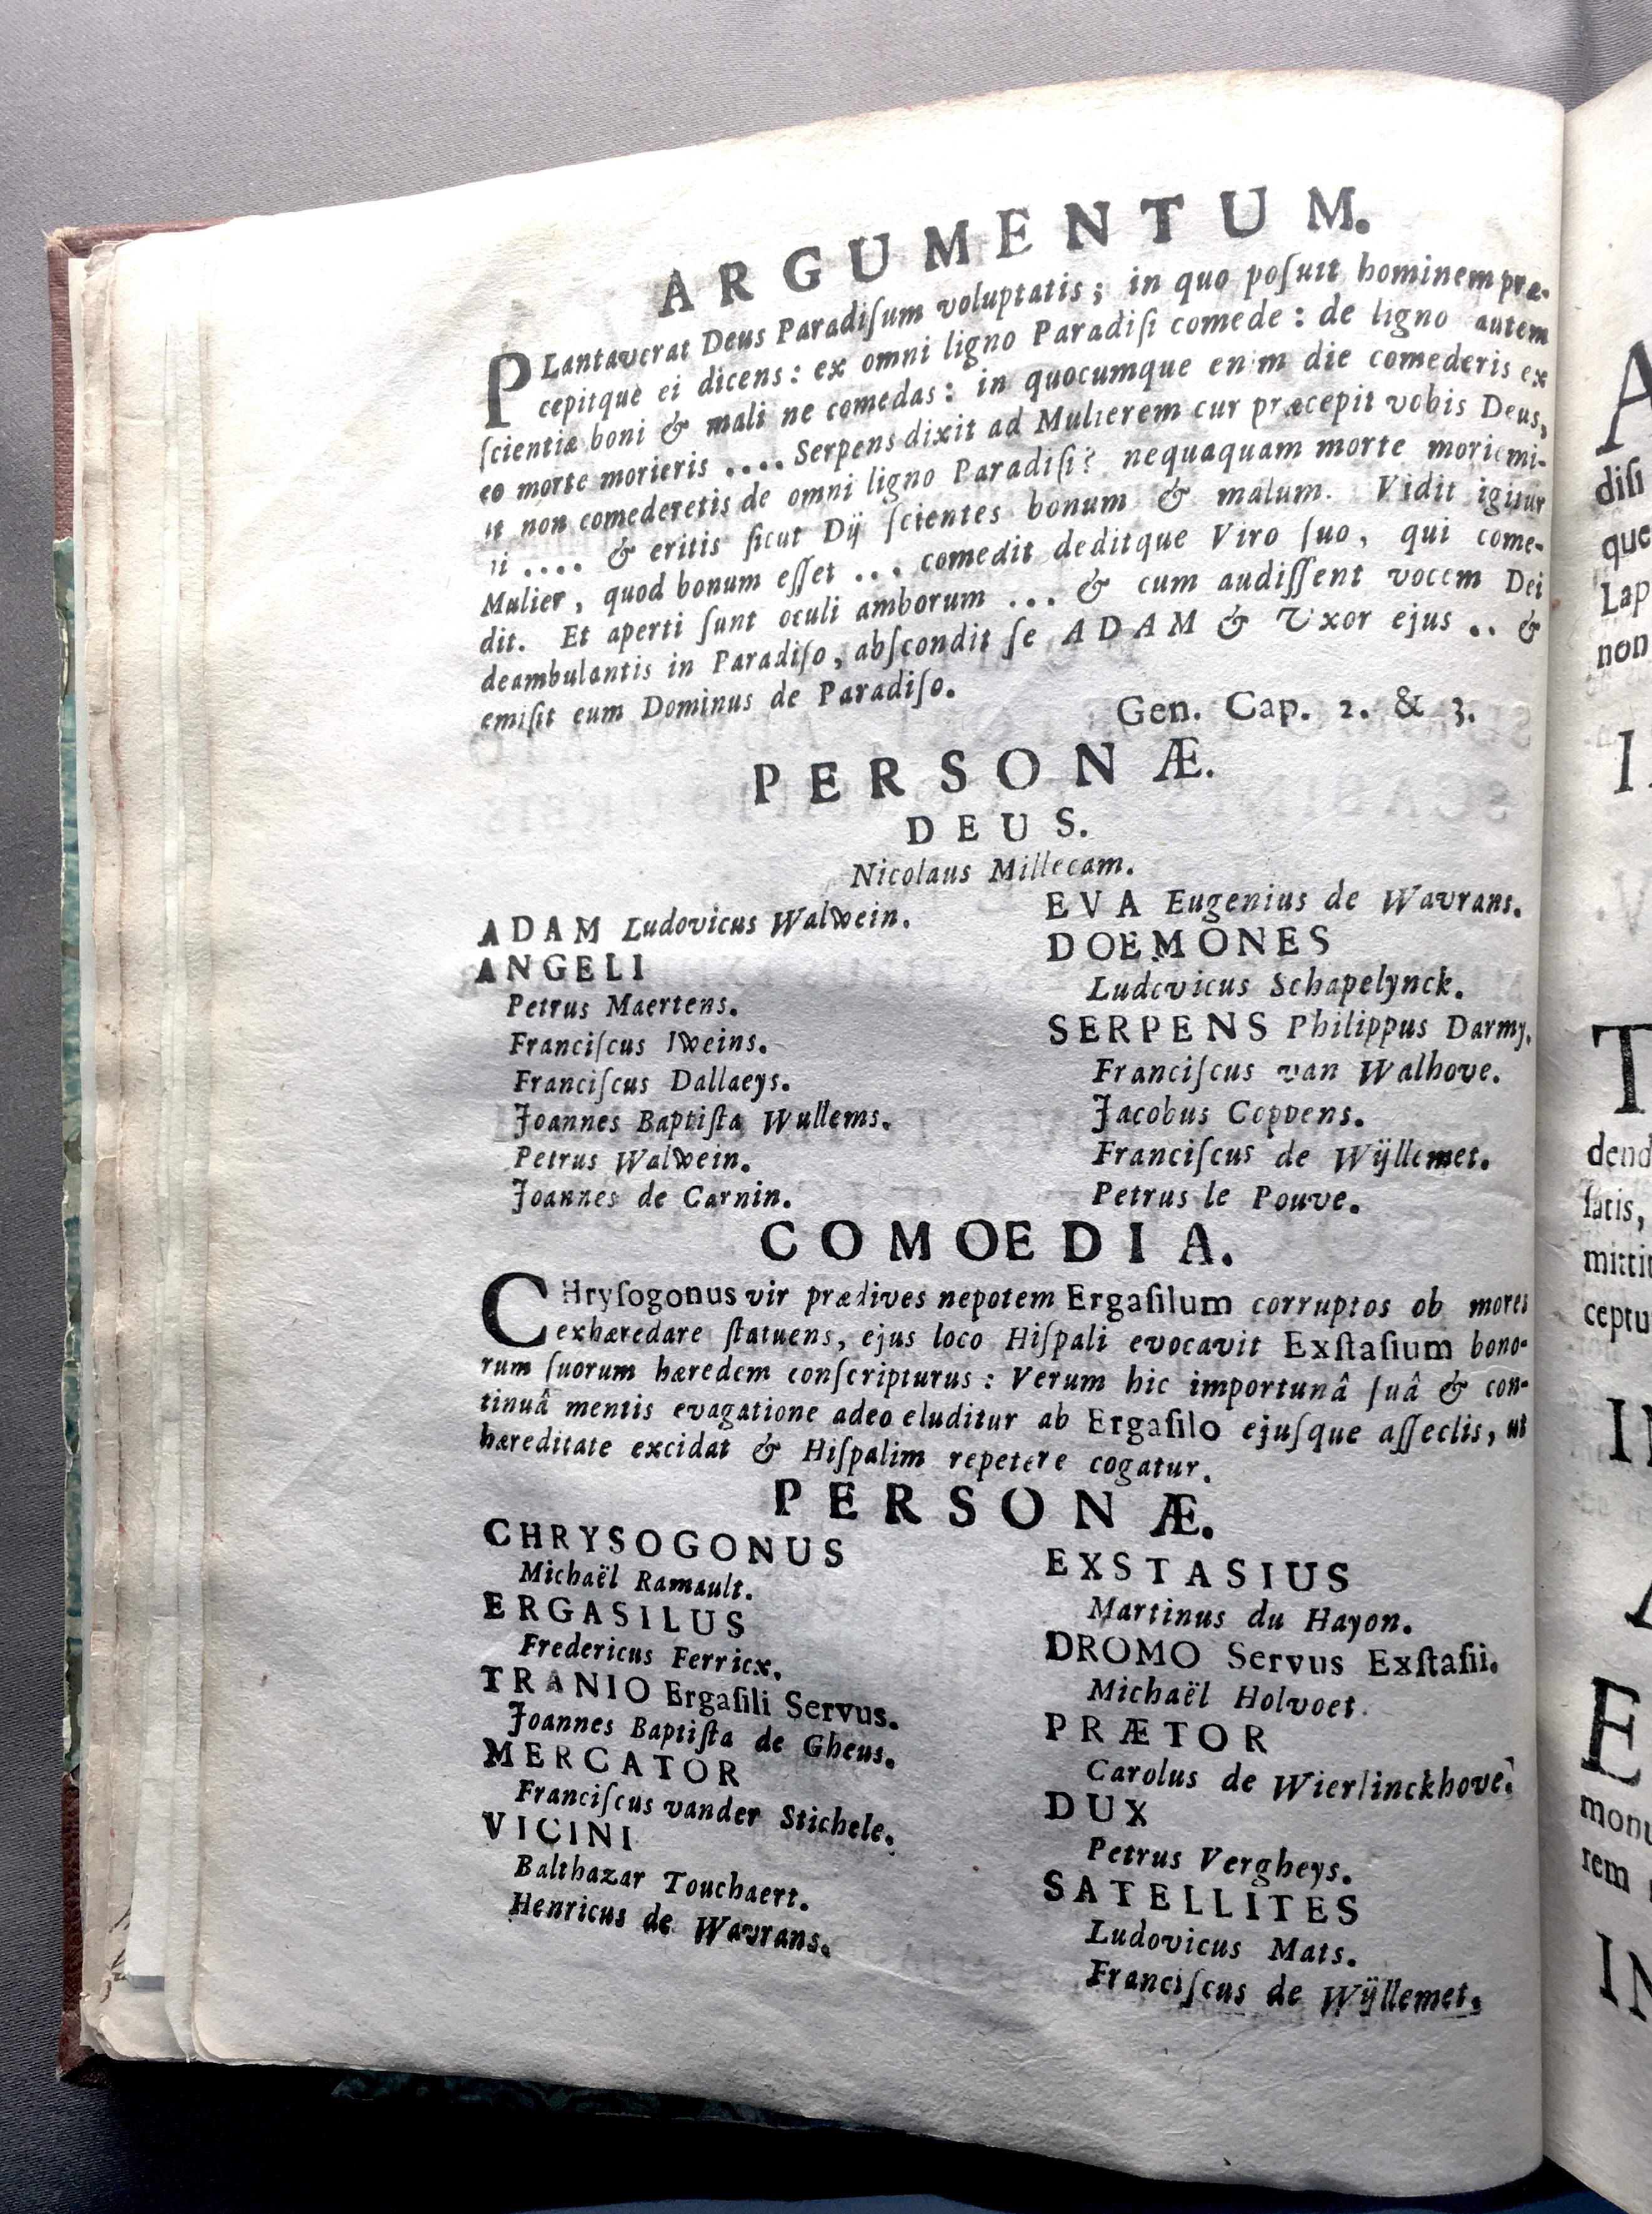 ARGUMENTUM.
PLantaverat Deus Paradiſum voluptatis; in quo poſuit hominem præ-
cepitque ei dicens: ex omni ligno Paradiſi comede: de ligno autem
ſcientiæ boni & mali ne comedas: in quocumque enim die comederis ex
eo morte morieris .... Serpens dixit ad Mulierem cur præcepit vobis Deus,
ut non comederetis de omni ligno Paradiſi? nequaquam morte moriemi-
ni .... & eritis ſicut Dij ſcientes bonum & malum. Vidit igitur
Mulier, quod bonum eſſet ... comedit deditque Viro ſuo, qui come-
dit. Et aperti ſunt oculi amborum ... & cum audiſſent vocem Dei
deambulantis in Paradiſo, abſcondit ſe ADAM & Uxor ejus .. &
emiſit eum Dominus de Paradiſo.
Gen. Cap. 2. & 3.
PERSONÆ.
DEUS.
Nicolaus Millecam.
ADAM Ludovicus Walwein.
ANGELI
Petrus Maertens.
Franciſcus Iweins.
Franciſcus Dallaeys.
Joannes Baptiſta Wullems.
Petrus Walwein.
Joannes de Carnin.
EVA Eugenius de Wavrans.
DOEMONES
Ludovicus Schapelynck.
SERPENS Philippus Darmy.
Franciſcus van Walhove.
Jacobus Coppens.
Franciſcus de Wÿllemet.
Petrus le Pouve.
COMOEDIA.
CHryſogonus vir prædives nepotem Ergaſilum corruptos ob mores
exhæredare ſtatuens, ejus loco Hiſpali evocavit Exſtaſium bono-
rum ſuorum hæredem conſcripturus: Verum hic importunâ ſuâ & con-
tinuâ mentis evagatione adeo eluditur ab Ergaſilo ejuſque aſſeclis, ut
hæreditate excidat & Hiſpalim repetere cogatur.
PERSONÆ.
CHRYSOGONUS
Michaël Ramault.
ERGASILUS
Fredericus Ferricx.
TRANIO Ergaſili Servus.
Joannes Baptiſta de Gheus.
MERCATOR
Franciſcus vander Stichele.
VICINI
Balthazar Touchaert.
Henricus de Wavrans.
EXSTASIUS
Martinus du Hayon.
DROMO Servus Exſtaſii.
Michaël Holvoet.
PRÆTOR
Carolus de Wierlinckhove.
DUX
Petrus Vergheys.
SATELLITES
Ludovicus Mats.
Franciſcus de Wÿllemet.